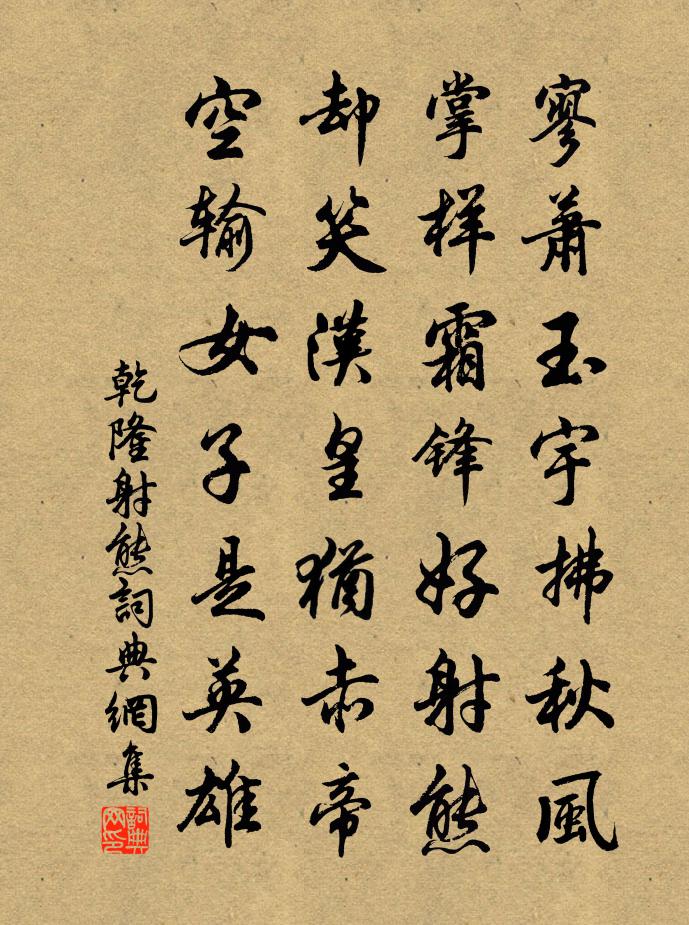 寥蕭玉宇拂秋風
掌样霜鋒好射熊
却笑漢皇猶赤帝
空输女子是英雄
乾隆射熊詞典網集
詞典網印